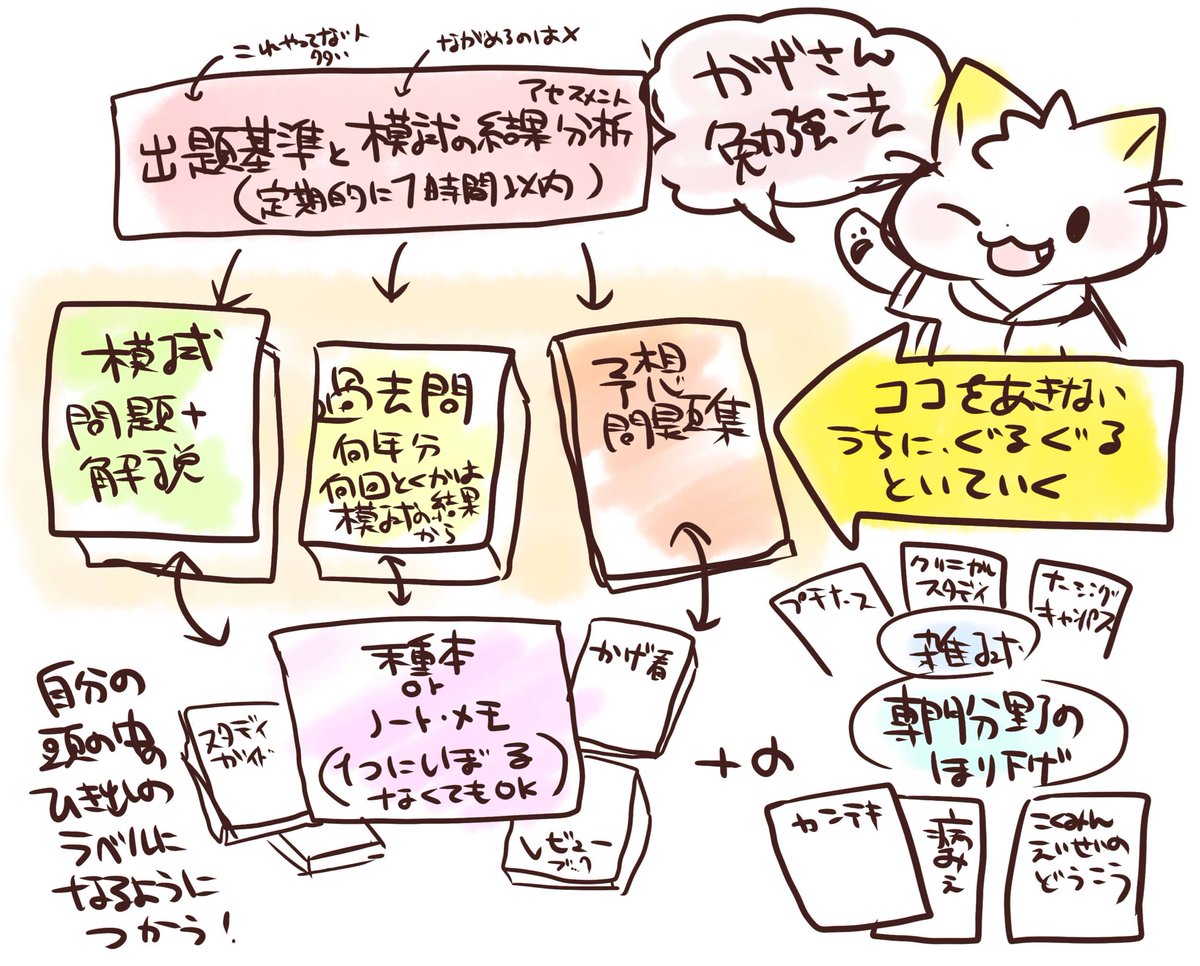 これやってない人
多い
ながめるのは×
アセスメント
出題基準と模試の結果分析
(定期的に1時間以内)
かげさん
勉強法
模試
問題+
解説
過去問
何年分
何回とくかは
模試の結果
から
予想
問題集
ココをあきない
うちに、ぐるぐる
といていく
自分の
頭の中の
ひき出しの
ラベルに
なるように
つかう!
一種本
or
ノート・メモ
(1つにしぼる
なくてもOK)
スタディ
ガイド
かげ看
レビュー
ブック
+α
プチナース
クリニカル
スタディ
ナーシング
キャンパス
雑誌
専門分野の
ほり下げ
カンテキ
病みえ
こくみん
えいせいの
どうこう